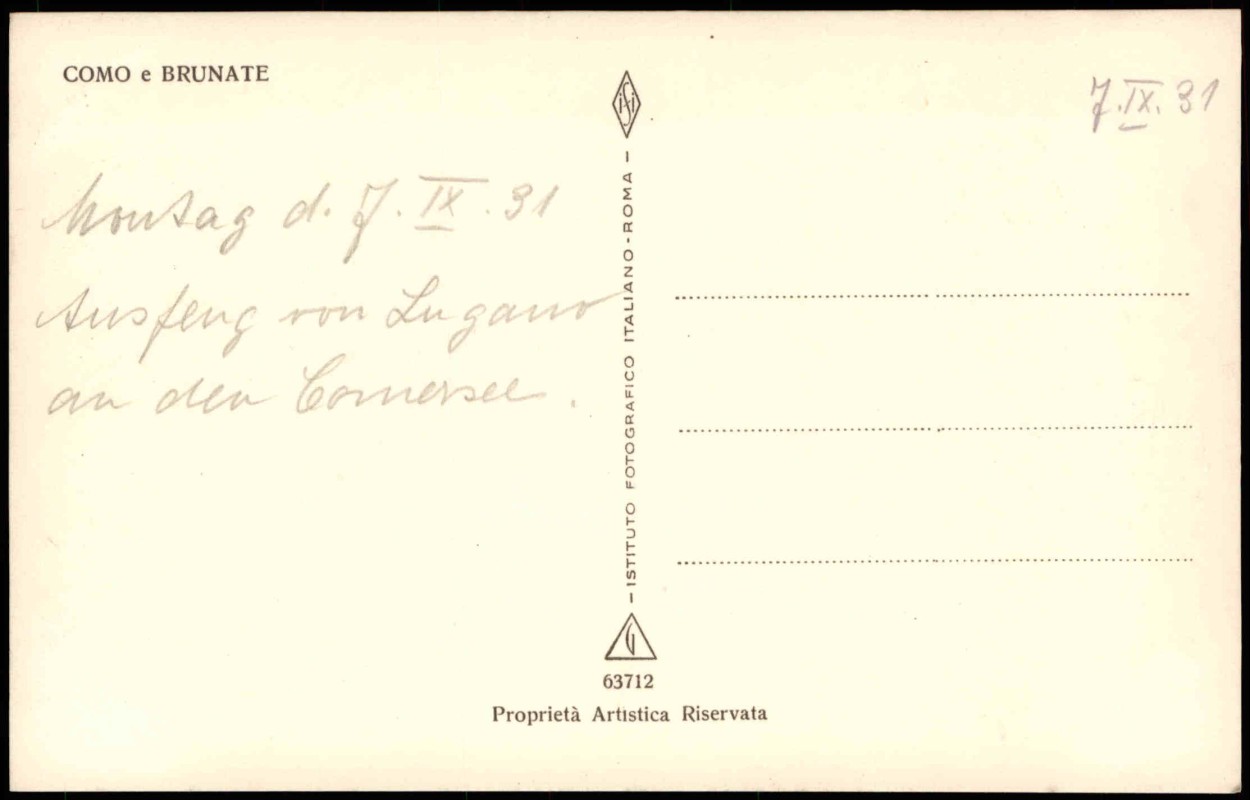 COMO e BRUNATE
7.IX.31
Montag d. 7.IX.31
Ausfeng von Lugano
an den Comersee.
ISi
— ISTITUTO FOTOGRAFICO ITALIANO-ROMA —
G
63712
Proprietà Artistica Riservata